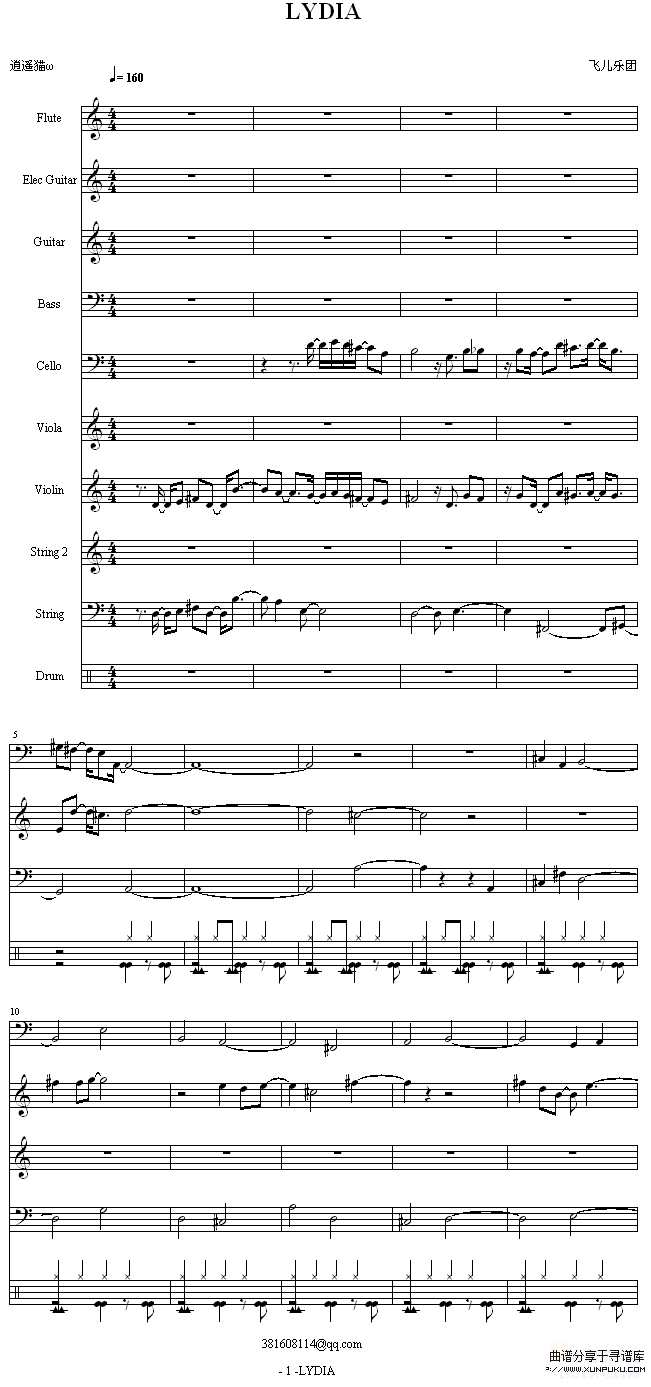 LYDIA
逍遥猫ω
♩= 160
飞儿乐团
Flute
Elec Guitar
Guitar
Bass
Cello
Viola
Violin
String 2
String
Drum
5
10
381608114@qq.com
- 1 -LYDIA
曲谱分享于寻谱库
WWW.XUNPUKU.COM